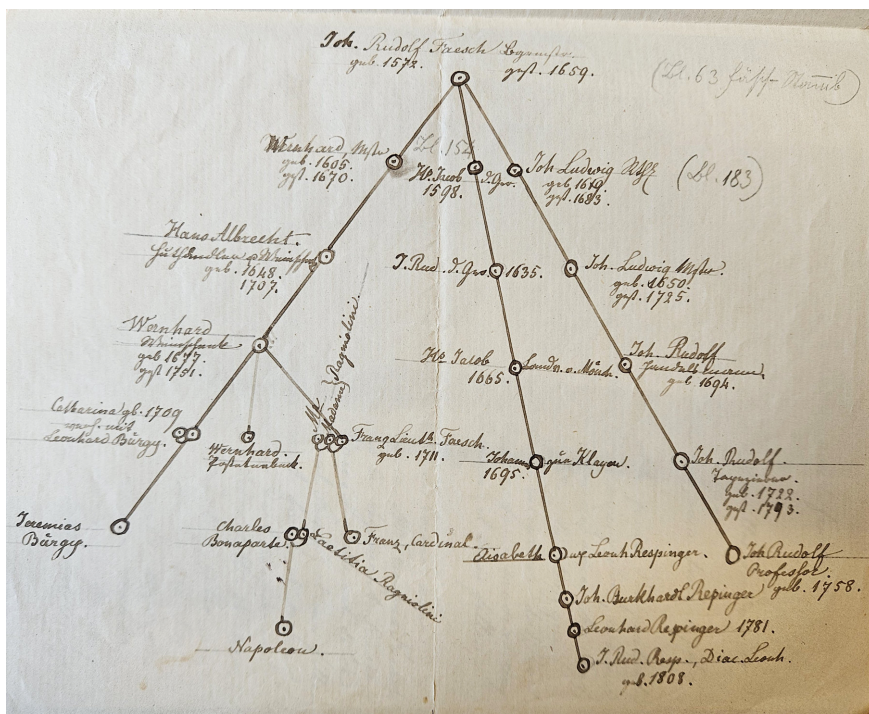 Joh. Rudolf Faesch
geb. 1572. gest. 1659.
(Bl. 63 fäsch-
Wernhard, Mstr
geb. 1605
gest. 1670.
Bl. 154
Hs. Jacob d. Gr.
1598.
Joh Ludwig
geb
gest.
(Bl. 183)
Hans Albrecht.
geb. 1648
1707.
J. Rud. d. Gr. 1635.
Joh. Ludwig Mstr.
geb. 1650
gest. 1725.
Wernhard
Weinschenk
geb 1677
gest 1751.
Mr
Madame Ragniolini
Hs Jacob
1665.
Joh. Rudolf
geb 1694.
Catharina gb. 1709
verh. mit
Leonhard Bürgy.
Wernhard
Franz Lieut. Faesch.
geb. 1711.
Johann zum Klagen.
1695.
Joh. Rudolf
geb. 1722
gest. 1793.
Jeremias
Bürgy.
Charles
Bonaparte
Laetitia Ragniolini
Franz, Cardinal.
Elisabeth ux Leonh Respinger.
Joh Rudolf
Professor
geb. 1758.
Joh. Burkhardt Repinger
Leonhard Respinger 1781.
J. Rud. Resp., Diac. Leonh.
geb. 1808.
Napoleon.